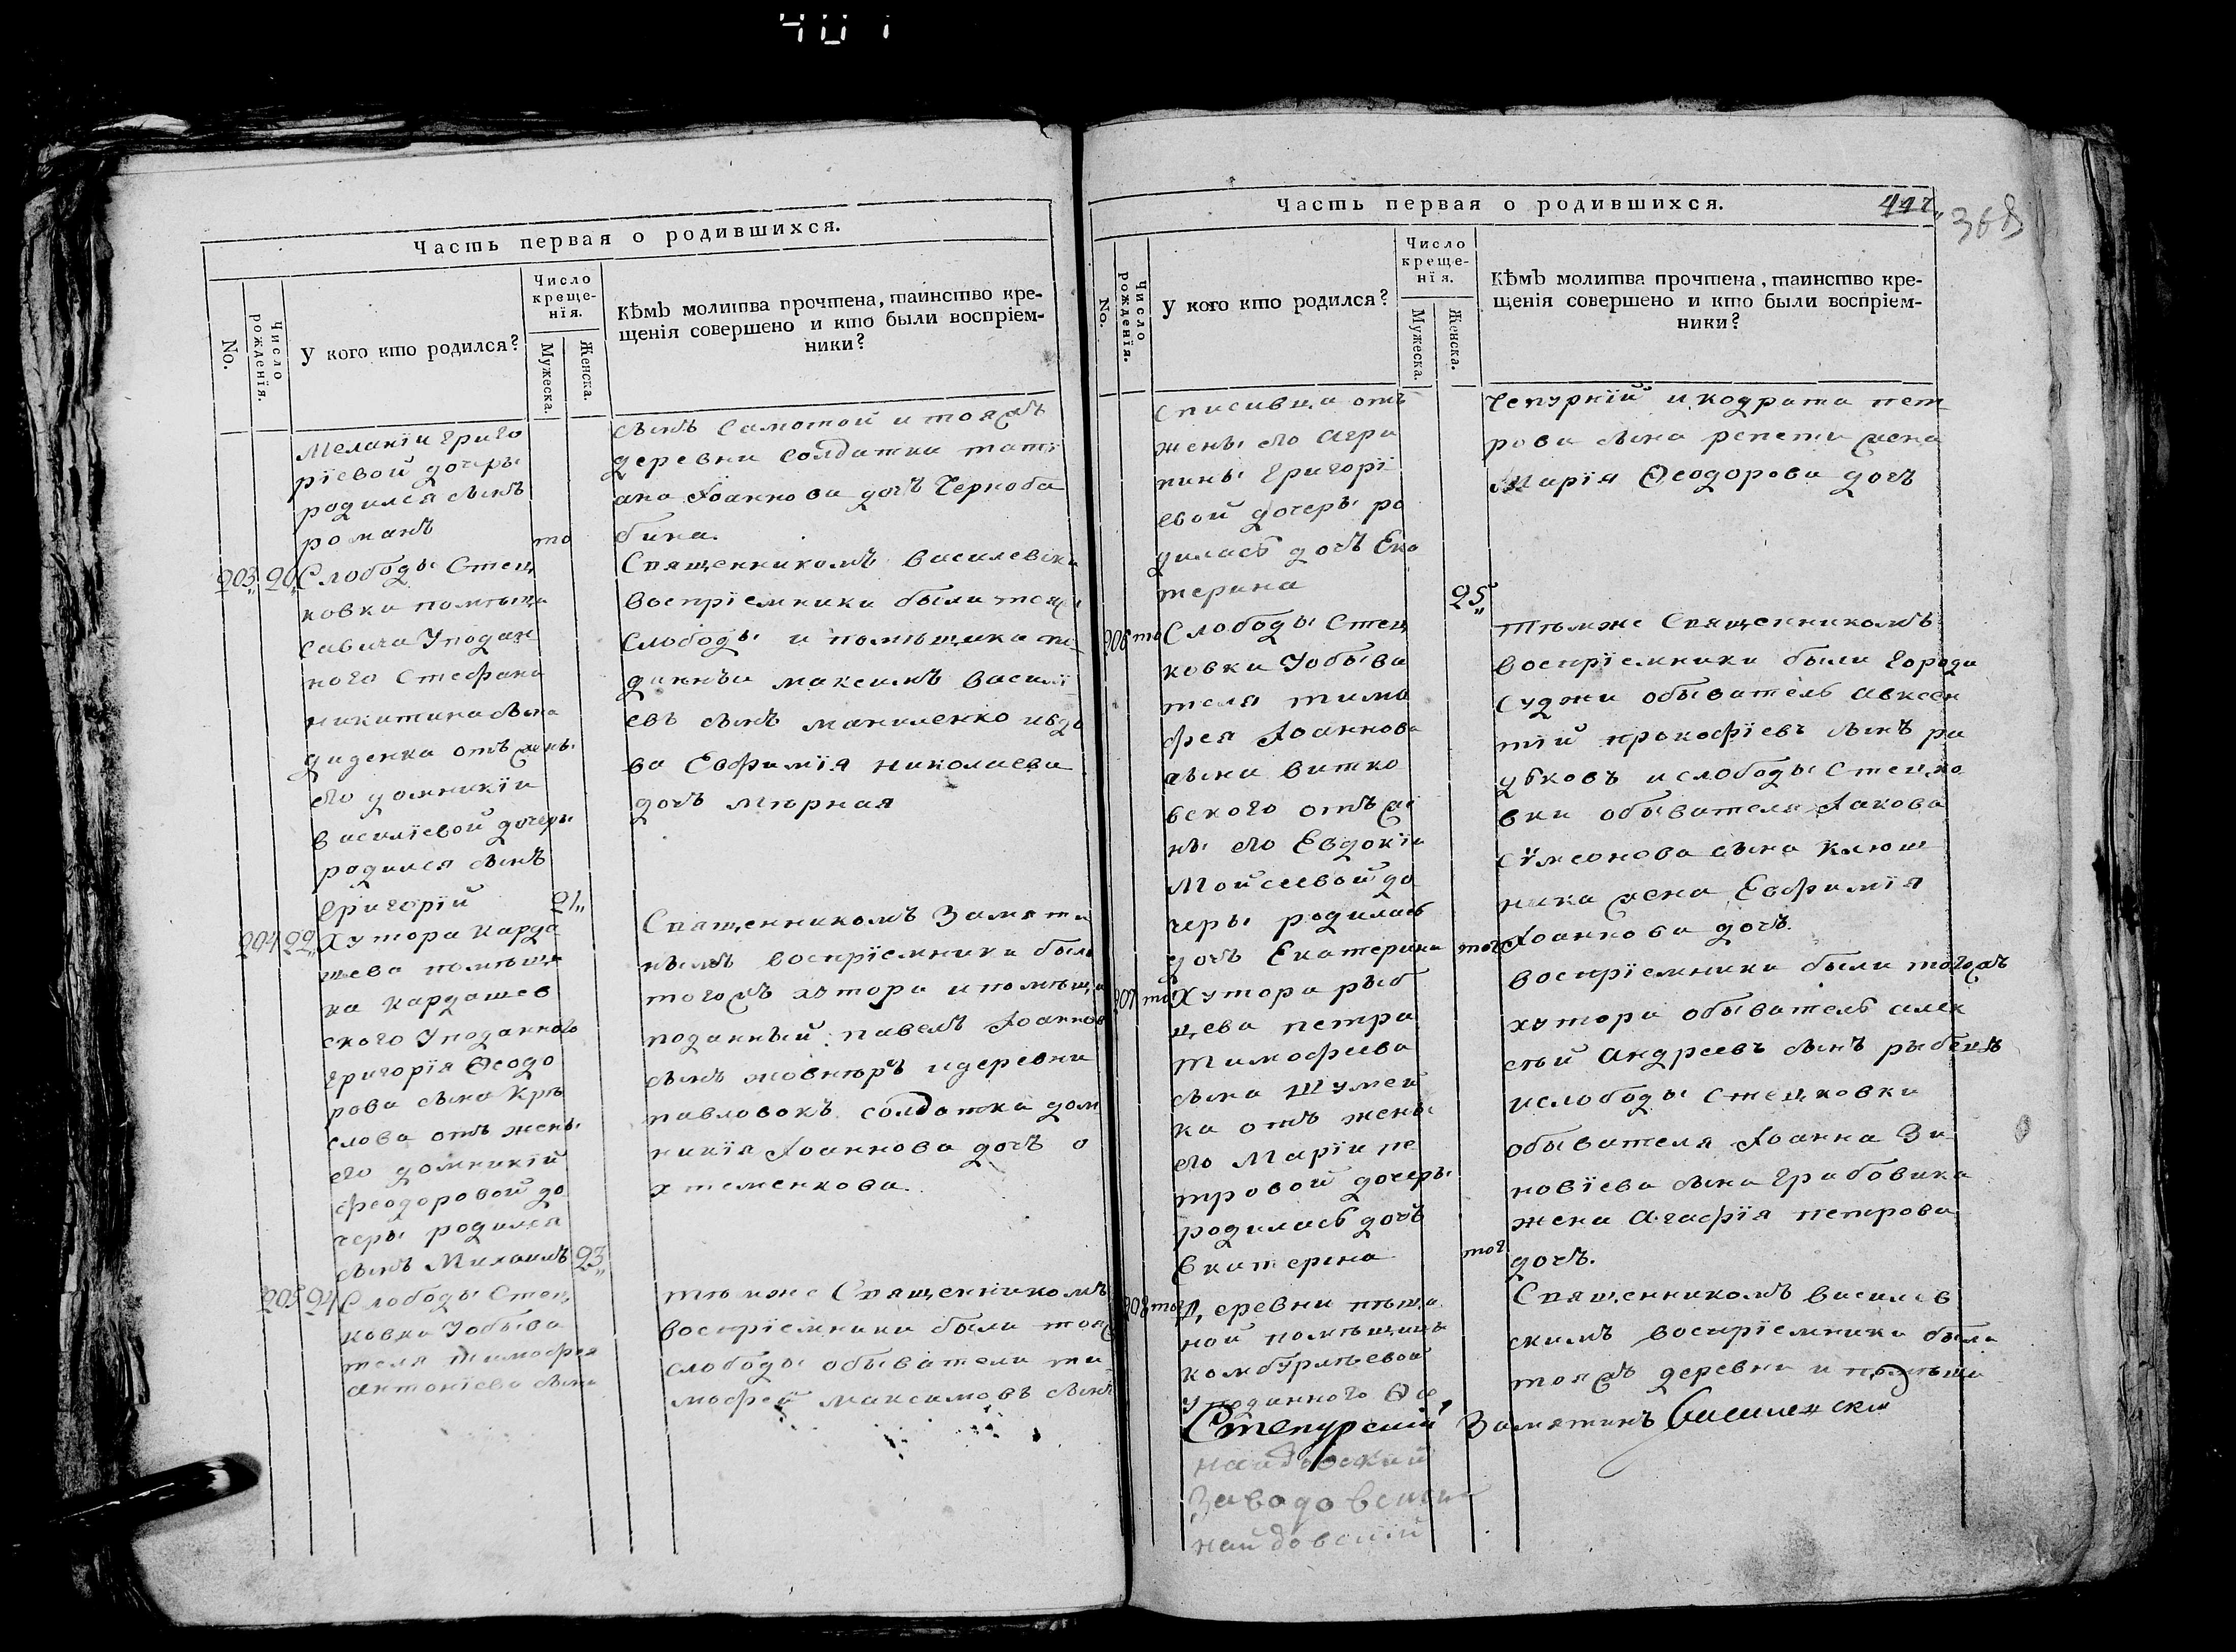 401
Часть первая о родившихся.
No.
Число рожденїя.
У кого кто родился?
Число креще-
нїя.
Мужеска.
Женска.
Кѣмъ молитва прочтена, таинство кре-
щенїя совершено и кто были воспрїем-
ники?
Меланїи Григо
рїевой дочеры
родился сынъ
романъ
то
сынъ Самотой и тояжъ
деревни солдатка татї
ана Їоаннова дочъ Черноба
бина.
203 20 Слободы Стец
ковки помѣщи
савича Уподан
ного Стефана
никитина сына
диденка отъ жены
его домникїи
василїевой дочеры
родился сынъ
Григорїй 21
Священникомъ василевски
воспрїемники были тояж
Слободы и помѣщика по
даннъи максимъ васили
евъ сынъ маниленко ивдо
ва Евфимїя николаева
дочъ мѣрная
204 22 Хутора карда
шева помѣщи
ка кардашев
ского Уподанного
григорїя Ѳеодо
рова сына Крѣ
слова отъ жены
его домникїй
феодоровой до
черы родился
сынъ Михаилъ 23
Священникомъ Замяти
нымъ воспрїемники были
тогожъ хутора и помѣщи
поданный павелъ Їоаннов
сынъ жовнѣръ идеревни
павловокъ солдатка дом
никїя Їоаннова дочъ о
хтеменкова.
205 24 Слободы Стец
ковки Уобыва
теля тимофея
антонїева сына
тѣмже Священникомъ
воспрїемники были тояж
слободы обыватели ти
мофей максимовъ сынъ
Часть первая о родившихся.
417
368
No.
Число рожденїя.
У кого кто родился?
Число
креще-
нїя.
Мужеска.
Женска.
Кѣмъ молитва прочтена, таинство кре-
щенїя совершено и кто были воспрїем-
ники?
списивца отъ
жены его агри
пины Григорї
евой дочеры ро
дилась дочъ Ека
терина
25
Чепурнїй и кодрата пет
рова сына репети жена
Марїя Ѳеодорова дочъ
206 то Слободы Стец
ковки Уобыва
теля тимо
фея Їоаннова
сына витко
вского отъ же
ны его Евдокїи
Мойсеевой до
черы родилась
дочъ Екатерина тог
Тѣмже Священникомъ
воспрїемники были города
Суджи обыватель авксен
тїй прокофїевъ сынъ ра
дковъ ислободы Стецко
вки обывателя Їакова
Сѵмеонова сына Клюш
ника жена Евфимїя
Їоаннова дочъ.
207 то Хутора рыб
цева петра
Тимофеева
сына Шумей
ка отъ жены
его Марїи пе
тровой дочеры
родилась дочъ
Екатерина тог
воспрїемники были тогожъ
хутора обыватель алек
сѣй Андреевъ сынъ рыбецъ
ислободы стецковки
обывателя Їоанна Зи
новїева сына Грабовика
жена Агафїя петрова
дочъ.
208 тог Деревни пѣща
ной помѣщицы
комбурлѣевой
Уподанного Ѳе
Священникомъ василев
скимъ воспрїемники были
тояжъ деревни и помѣщи
Степурскїй Замятинъ Василевски
найдовскїй
Заводовски
найдовскїй